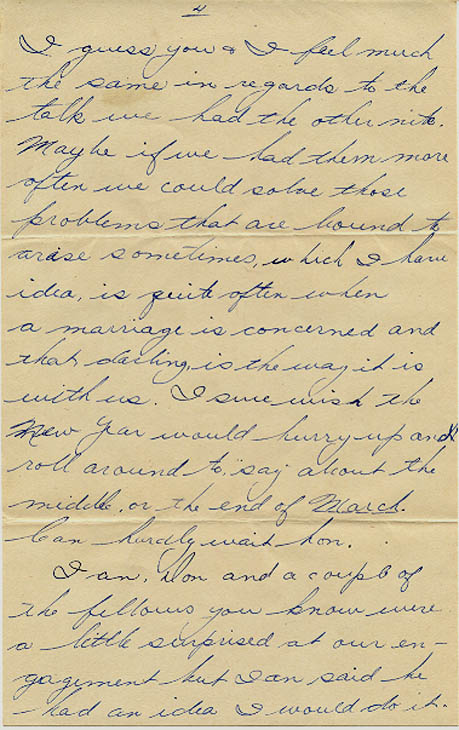 4
I guess you & I feel much
the same in regards to the
talk we had the other nite.
Maybe if we had them more
often we could solve those
problems that are bound to
arise sometimes, which I have
idea, is quite often when
a marriage is concerned and
that darling, is the way it is
with us. I sure wish the
New Year would hurry up and
roll around to, say about the
middle, or the end of March.
Can hardly wait hon.
Ian, Don and a couple of
the fellows you know were
a little surprised at our en-
gagement but Ian said he
had an idea I would do it.